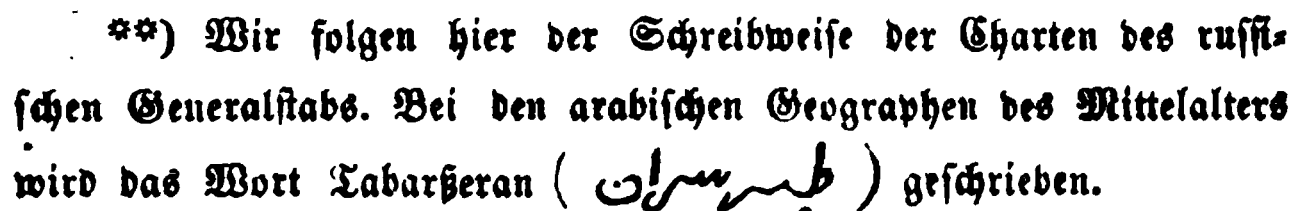 **) Wir folgen hier der Schreibweise der Charten des russi-
schen Generalstabs. Bei den arabischen Geographen des Mittelalters
wird das Wort Tabarßeran ( طبرسران ) geschrieben.